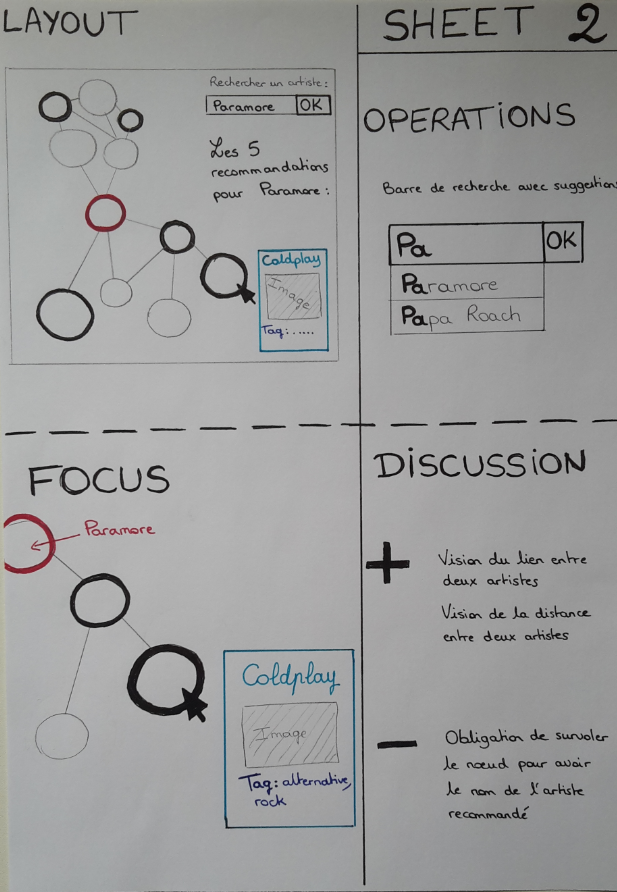 LAYOUT
Rechercher un artiste:
Paramore OK
Les 5
recommandations
pour Paramore:
Coldplay
Image
Tag:......
SHEET 2
OPERATIONS
Barre de recherche avec suggestions
Pa OK
Paramore
Papa Roach
FOCUS
Paramore
Coldplay
Image
Tag: alternative,
rock
DISCUSSION
+
Vision du lien entre
deux artistes
Vision de la distance
entre deux artistes
-
Obligation de survoler
le nœud pour avoir
le nom de l'artiste
recommandé